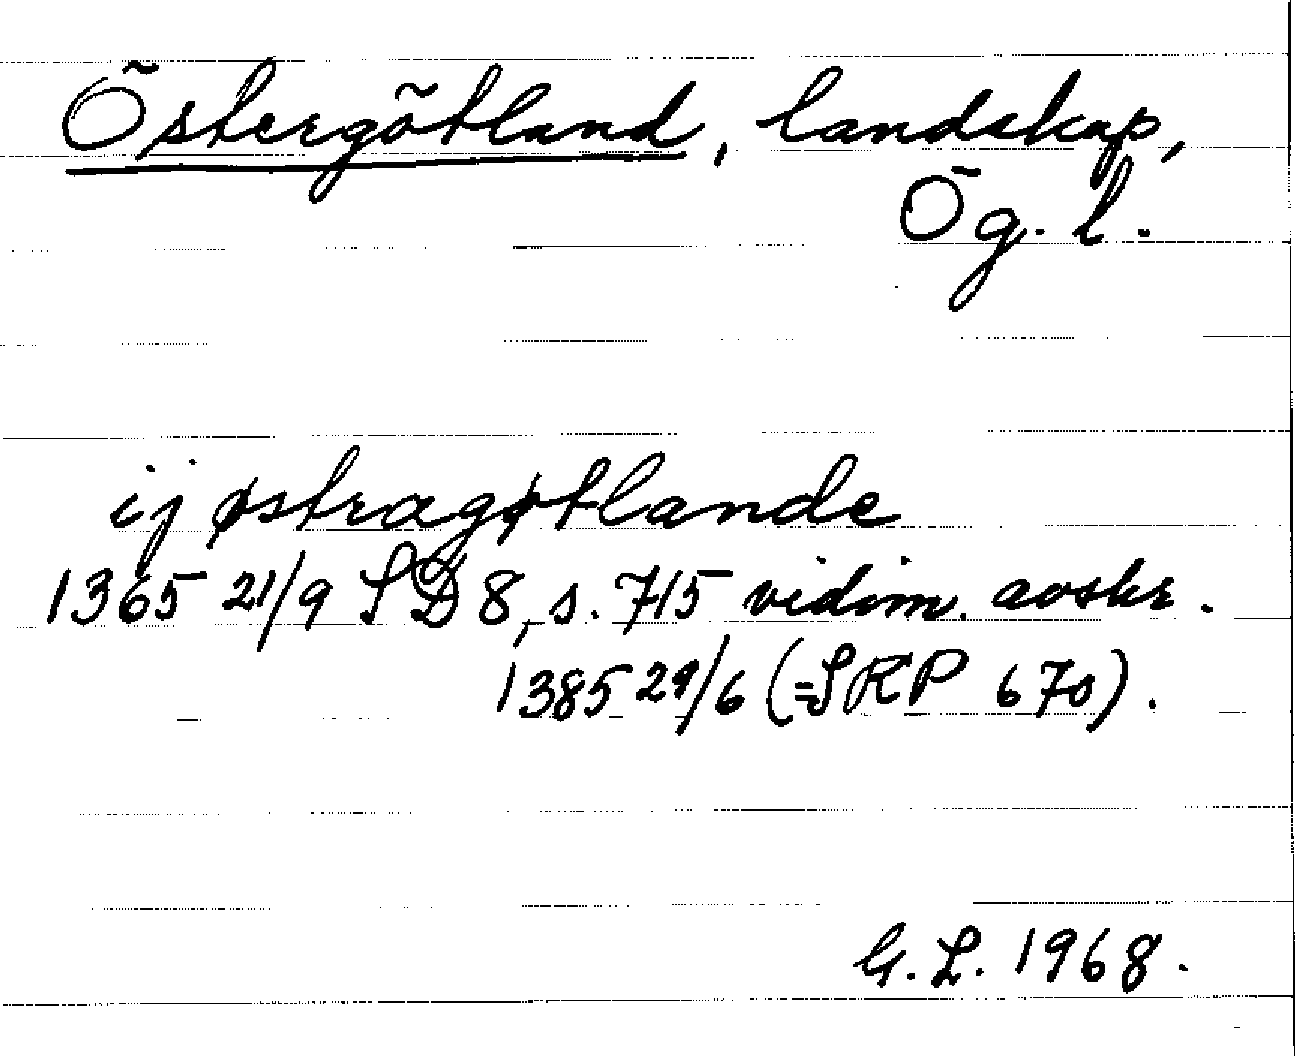 Östergötland, landskap,
Ög. l.
ij østragøtlande
1365 21/9 SD 8, s. 715 vidim. avskr.
1385 29/6 (=SRP 670).
G. L. 1968.